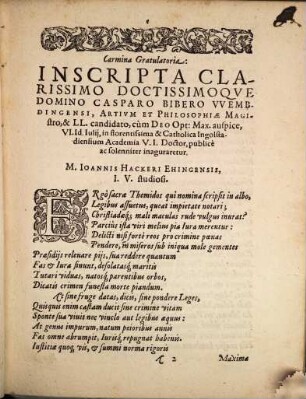 Carmina Gratulatoria:
INSCRIPTA CLA-
RISSIMO DOCTISSIMOQVE
DOMINO CASPARO BIBERO VVEMB-
DINGENSI, ARTIVM ET PHILOSOPHIÆ MAGI-
stro, & LL. candidato, cùm DEO Opt: Max. auspice,
VI. Id. Iulij, in florentissima & Catholica Ingolsta-
diensium Academia V. I. Doctor, publicè
ac solenniter inauguraretur.
M. IOANNIS HACKERI EHINGENSIS,
I. V. studiosi.
ERgò sacræ Themidos qui nomina scripsit in albo,
Legibus assuetus, queat impietate notari;
Christiadasq; malè maculas rude vulgus inurat?
Partiri ista viri meliùs pia Iura merentur:
Delicti nisi fortè reos pro crimine pœnas
Pendere, & miseros sub iniqua mole gementes
Præsidijs releuare pijs, sua reddere quantum
Fas & Iura sinunt, desolatasq; maritis
Tutari viduas, natosq; parentibus orbos,
Ducatis crimen funesta morte piandum.
At sine fruge datas, dicis, sine pondere Leges,
Quiquis enim castam ducit sine crimine vitam
Sponte sua viuit nec vinclo aut legibus æquus:
At genus impurum, natum peioribus annis
Fas omne abrumpit, Iurisq; repugnat habenis.
Iustitiæ quoq; vis, & summi norma rigoris
A 2
Maxima